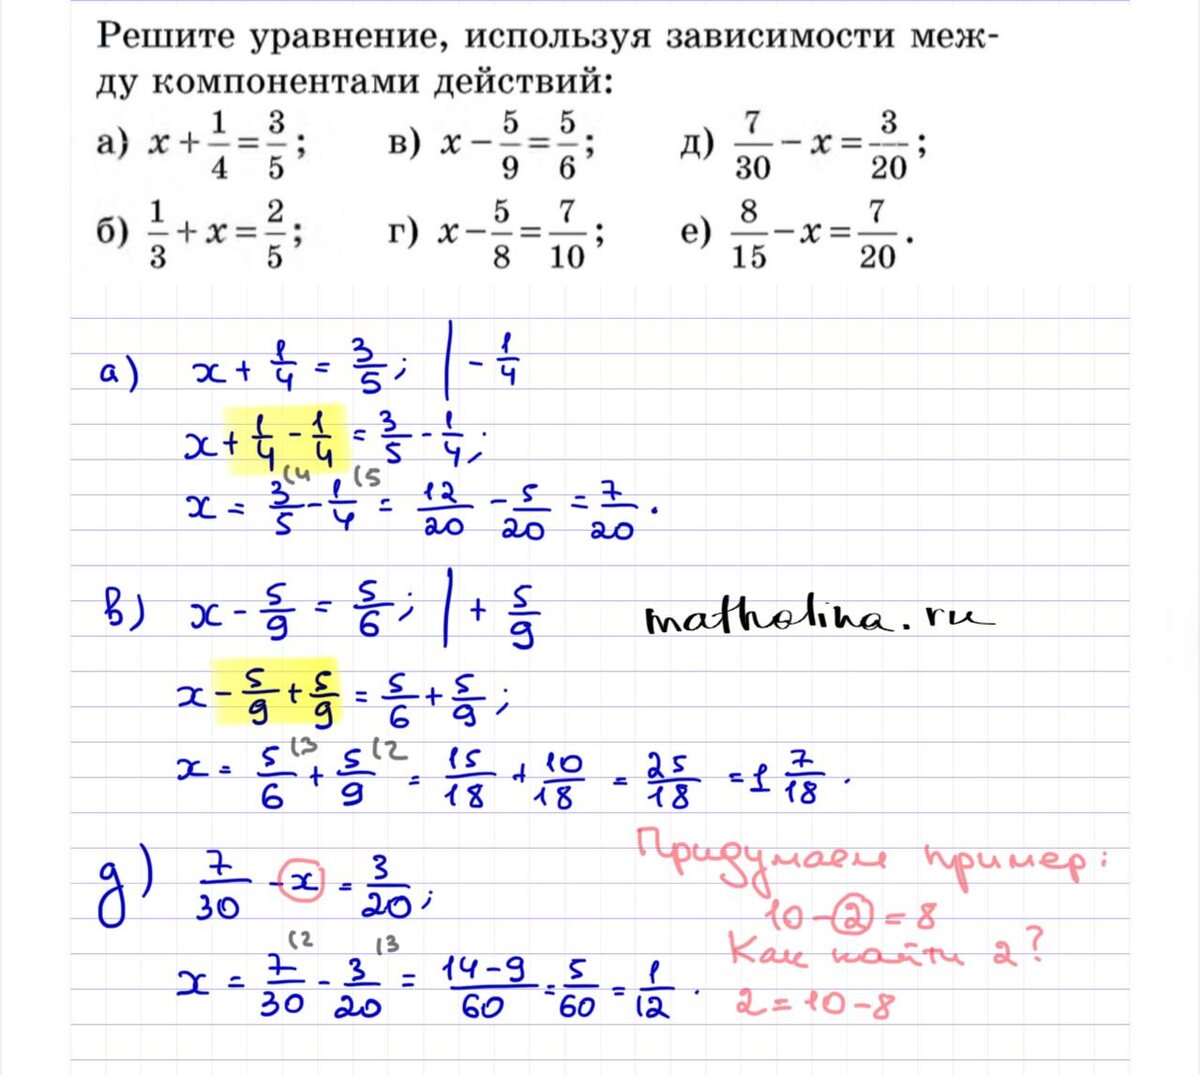 Решите уравнение, используя зависимости меж-
ду компонентами действий:
а) x + 1/4 = 3/5; в) x − 5/9 = 5/6; д) 7/30 − x = 3/20;
б) 1/3 + x = 2/5; г) x − 5/8 = 7/10; е) 8/15 − x = 7/20.
а) x + 1/4 = 3/5; | − 1/4
x + 1/4 − 1/4 = 3/5 − 1/4;
x = 3/5 (4 − 1/4 (5 = 12/20 − 5/20 = 7/20.
в) x − 5/9 = 5/6; | + 5/9
matholina.ru
x − 5/9 + 5/9 = 5/6 + 5/9;
x = 5/6 (3 + 5/9 (2 = 15/18 + 10/18 = 25/18 = 1 7/18.
д) 7/30 − x = 3/20;
x = 7/30 (2 − 3/20 (3 = 14−9/60 = 5/60 = 1/12.
Придумаем пример:
10 − 2 = 8
Как найти 2?
2 = 10 − 8